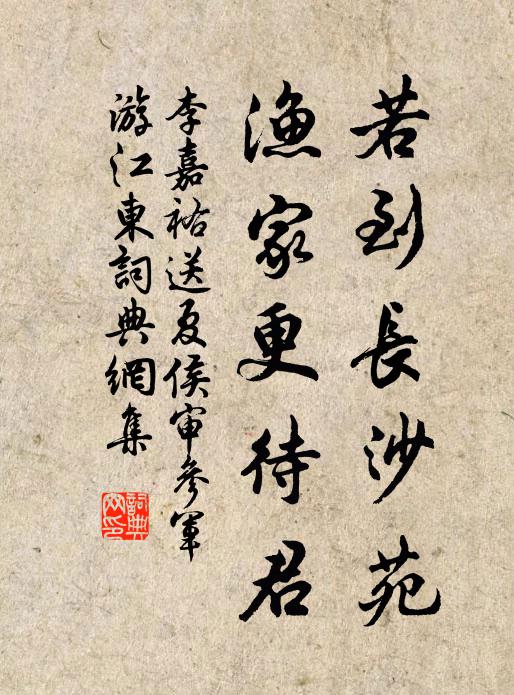 若到長沙苑
漁家更待君
李嘉祐送夏侯审參軍
游江東詞典網集
詞典网印